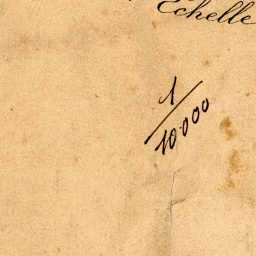 Echelle
1/10.000